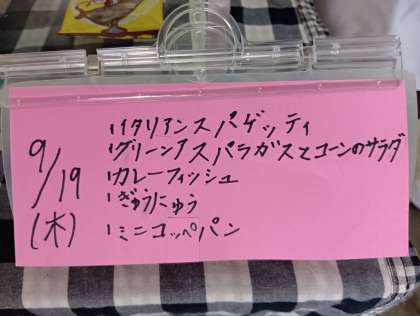 9/19
(木)
イタリアンスパゲッティ
グリーンアスパラガスとコーンのサラダ
カレーフィッシュ
ぎゅうにゅう
ミニコッペパン